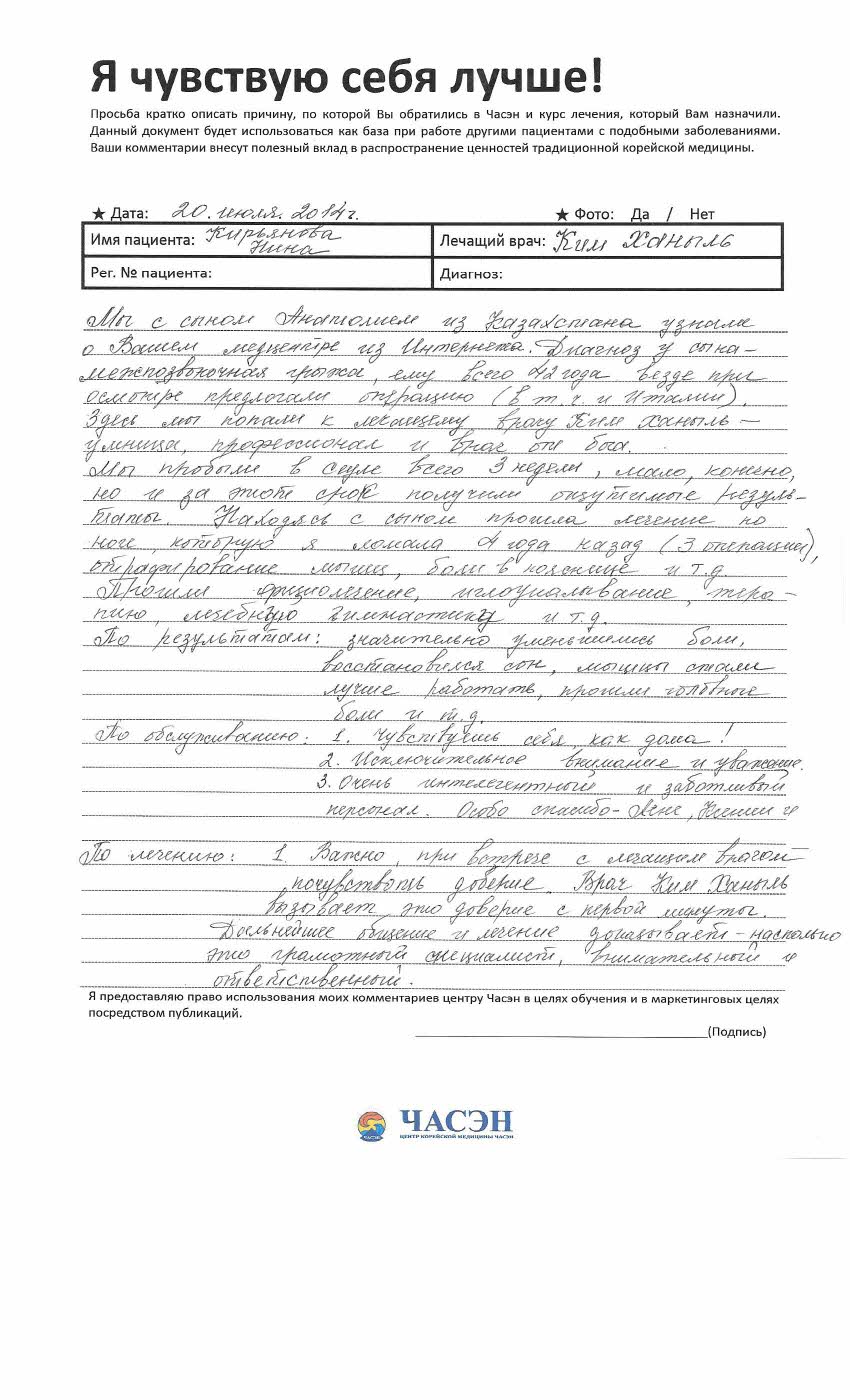 Я чувствую себя лучше!
Просьба кратко описать причину, по которой Вы обратились в Часэн и курс лечения, который Вам назначили.
Данный документ будет использоваться как база при работе другими пациентами с подобными заболеваниями.
Ваши комментарии внесут полезный вклад в распространение ценностей традиционной корейской медицины.
★ Дата: 20. июля. 2014 г. ★ Фото: Да / Нет
Имя пациента: Кирьянова Нина Лечащий врач: Ким Ханыль
Рег. № пациента: Диагноз:
Мы с сыном Анатолием из Казахстана узнали
о Вашем медцентре из Интернета. Диагноз у сына –
межпозвоночная грыжа, ему всего 42 года везде при
осмотре предлогали операцию (в т. ч. и Италии).
Здесь мы попали к лечащему врачу Ким Ханыль –
умница, профессионал и врач от бога.
Мы пробыли в Сеуле всего 3 недели, мало, конечно,
но и за этот срок получили ощутимые резуль-
таты. Находясь с сыном прошла лечение по
ноге, которую я ломала 4 года назад (3 операции),
отрафирование мышц, боли в пояснице и т.д
Прошли физиолечение, иглоукалывание, тера-
пию, лечебную гимнастику и т.д.
По результатам: значительно уменьшились боли,
восстановился сон, мышцы стали
лучше работать, прошли головные
боли и т.д.
По обслуживанию: 1. Чувствуешь себя, как дома!
2. Исключительное внимание и уважение.
3. Очень интелегентный и заботливый
персонал. Особо спасибо - Яне, и
По лечению: 1. Важно, при встрече с лечащим врачом
почувствовать доверие. Врач Ким Ханыль
вызывает это доверие с первой минуты.
Дальнейшее общение и лечение доказывает – насколько
это грамотный специалист, внимательный и
ответственный.
Я предоставляю право использования моих комментариев центру Часэн в целях обучения и в маркетинговых целях
посредством публикаций.
(Подпись)
ЧАСЭН
ЦЕНТР КОРЕЙСКОЙ МЕДИЦИНЫ ЧАСЭН